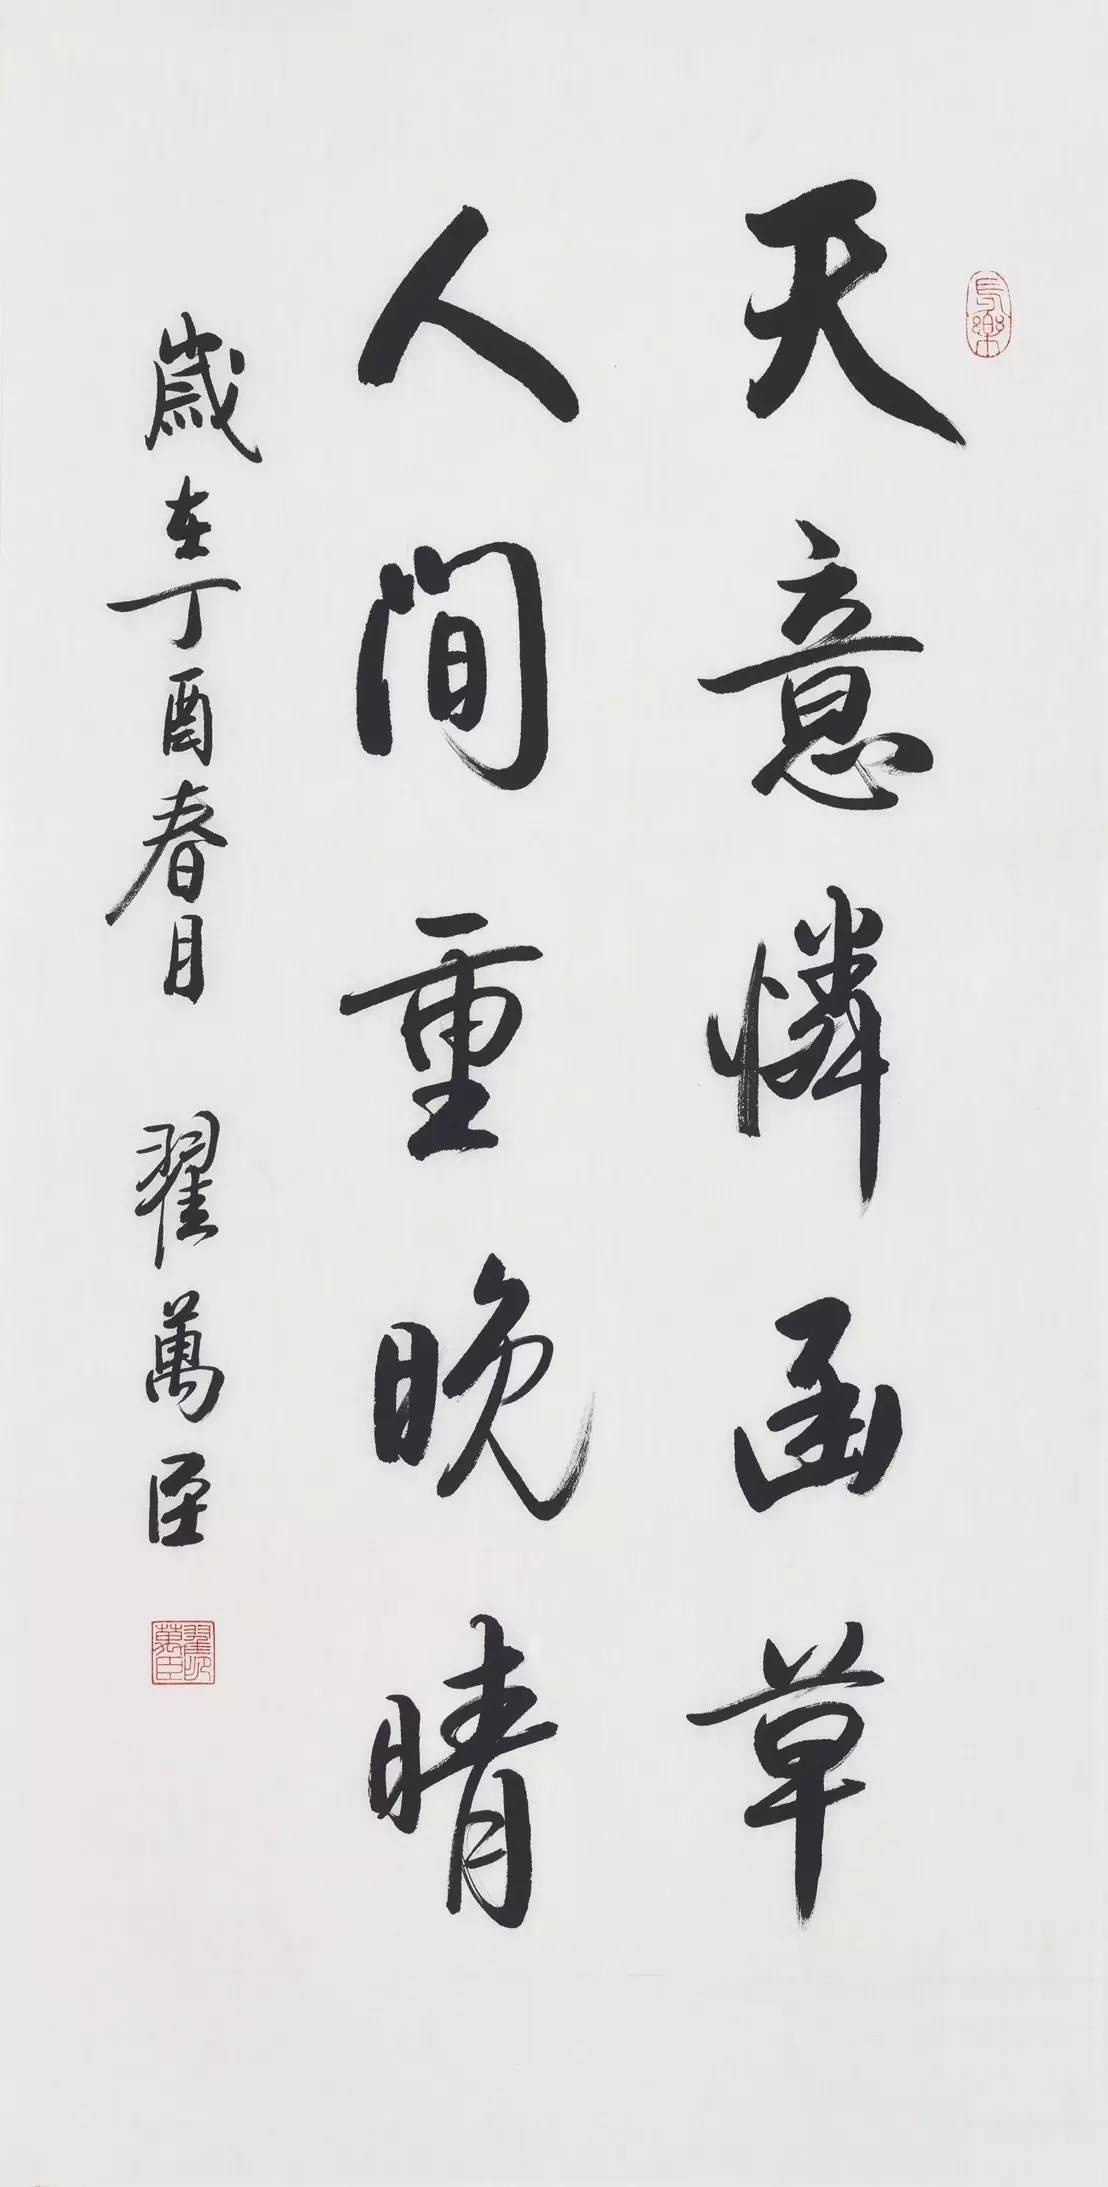 長樂
天意憐幽草
人間重晚晴
歲在丁酉春月 翟萬臣
翟萬臣印